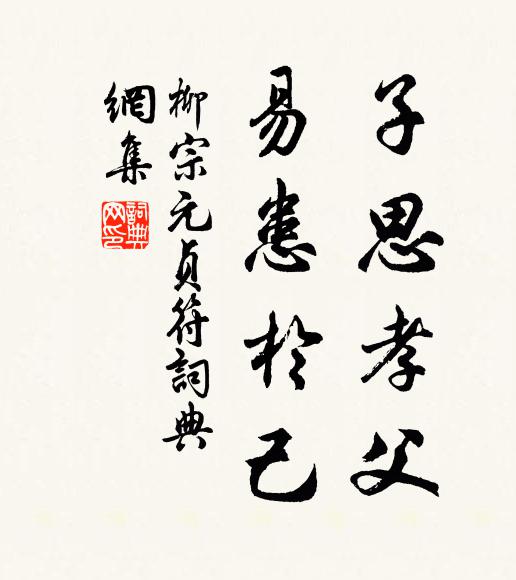 子思孝父
易患於己
柳宗元貞符詞典
網集
詞典網印